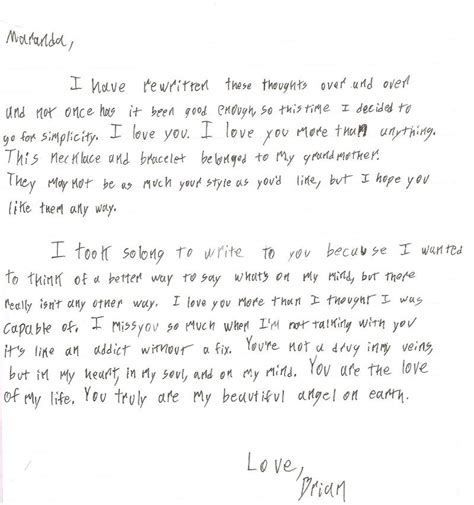 Maranda,
I have rewritten these thoughts over and over
and not once has it been good enough, so this time I decided to
go for simplicity. I love you. I love you more than anything.
This necklace and bracelet belonged to my grandmother.
They may not be as much your style as you'd like, but I hope you
like them any way.
I took so long to write to you because I wanted
to think of a better way to say whats on my mind, but there
really isn't any other way. I love you more than I thought I was
capable of. I miss you so much when I'm not talking with you
it's like an addict without a fix. You're not a drug in my veins,
but in my heart, in my soul, and on my mind. You are the love
of my life. You truly are my beautiful angel on earth.
Love,
Brian